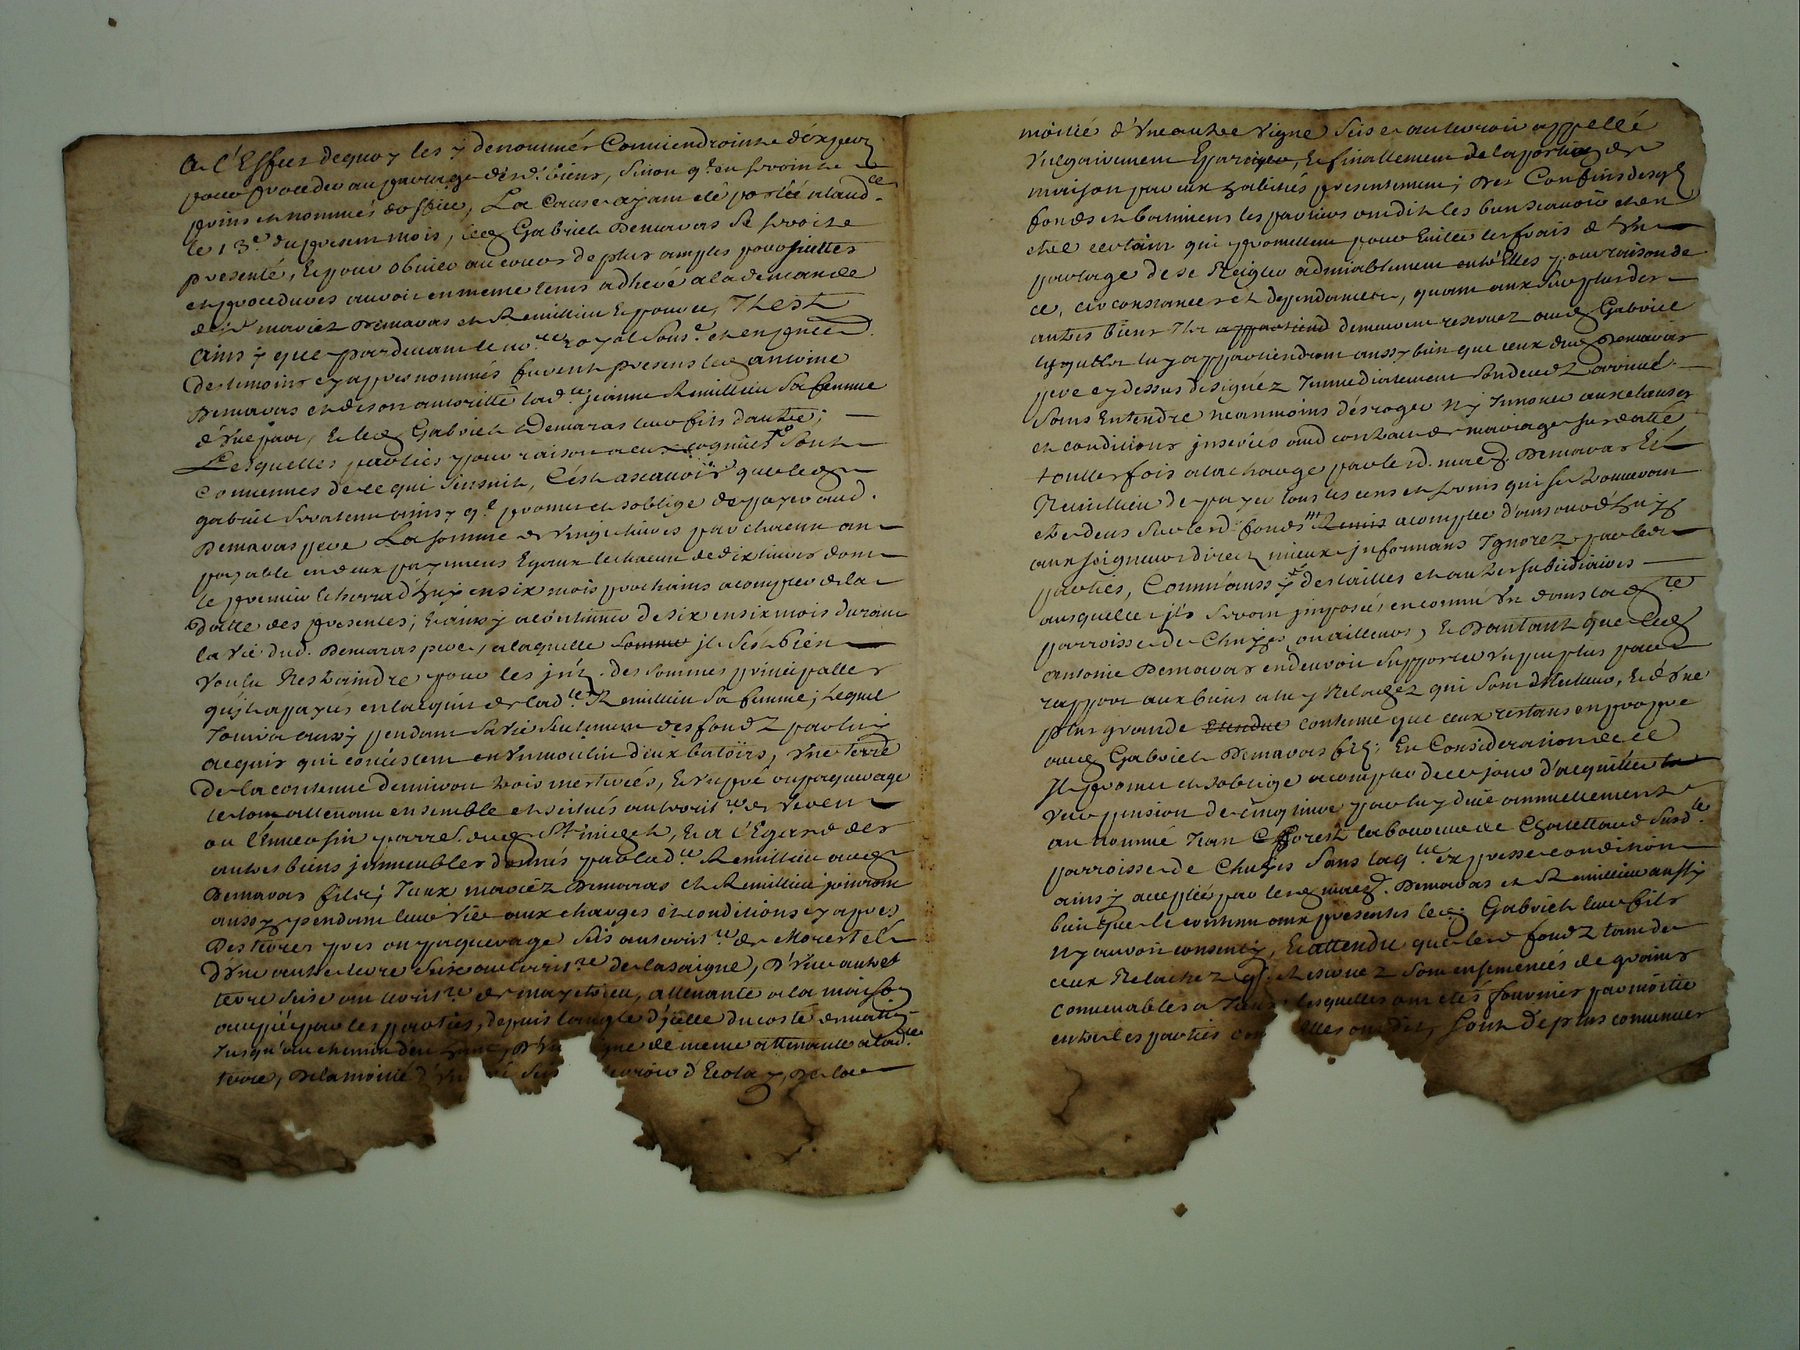 A l'Effect dequoy les y denommés Conviendrointe d'expers
pour proceder au partage desd. biens, sinon q.^e en seroint
prins et nommés d'office, La Cause ayant eté portée alaud.^ce
le 13^e du present mois, led Gabriel Demaras se seroit
presenté, Et pour obvier au cours de plus amples poursuittes
et procedures auroit en meme tems adheré a la demande
desd mariez Demaras et Remillieu Et pource, Il est
Ainsy que pardevant le no.^re royal sous.^é et en p̃nce d.
des temoins cy apres nommés furent presens led antoine
Demaras et de son autoritté lad.^te jeanne Remillieu sa femme
d'Une part, Et led Gabriel Demaras leur fils d'autre;
Lesquelles parties pour raison a ce sont
Convenues de ce qui sensuit, C'est ascavoir que led
gabriel sera tenu ainsy q.^e promet et soblige de payer aud.
Demaras pere La somme de Vingt livres par chacun an
payable en deux payemens Egaux le chacun de dix livres dont
le premier Echerra d'huy en six mois prochains acompter de la
datte des presentes, Et ainsy a continuer de six en six mois durant
la vie dud. Demaras pere, a laquelle somme il s'est bien
Voulu Restraindre pour les int. des sommes principalles
qu'jl a payés en l'acquit de lad.^te Remillieu sa femme; Lequel
Jouira aussy pendant sa vie seulement des fondz par luy
acquis qui consistent en Un moulin d'eux batoirs, Une terre
de la contenue d'environ trois mesturées, Et Un pré ou paquerage
le tout attenant ensemble et scitués au territ.^re de Veven
ou l'Enversin parr.^e dud S^t michel, Et a l'Egard des
autres biens jmmeubles donnés par lad.^te Remillieu aud
Demaras fils; Iceux mariéz Demaras et Remillieu jouiront
aussy pendant leur Vie aux charges et conditions cy apres
Des terres pres ou paquerage sis au territ.^re de Morestel
D'Une autre terre size au territ.^re de la saigne, D'Une autre
terre size au territ.^re de, attenante a la maison
occupée par les parties, depuis l'angle d'jcelle du costé de
Jusqu'au chemin, D'Un gne de meme attenante a lad.^te
terre, De la moitié d'Un si erroir d'Ecolay, De la
moitié d'Une autre Vigne size au terroir appellé
Vulgairement, Et finallement de la portion de
maison par eux habitée presentement; Des Confins desq
fonds et batimens les parties ont dit les bien scavoir et en
etre certains qui promettent pour Eviter les frais d'Un
partage de se Reigler admiablement entr'Elles pour raison de
ce, circonstances et dependances, quant aux surplus des
autres biens Ils demeurent reservez aud Gabriel
lesquels luy appartiendront aussy bien que ceux dud Demaras
pere cy dessus designéz Immediatement son decedz arrivé
Sans Entendre neanmoins deroger ny Innover aux clauses
et conditions jnserées aud contract de mariage susdatté
touttesfois a la charge par lesd. mariez Demaras Et
Remillieu de payer tous les cens et servis qui se trouveront
etre deus sur lesd. fonds acompter d'aujourd'huy
aux seigneurs directz mieux jnformans Ignorez par les
parties, Comm'aussy des tailles et autres subsidiaires
ausquelles jls seront jmposés en comm'Un dans lad.^te
parroisse de Chuzes ou ailleurs, Et D'autant que led
antoine Demaras en devroit supporter Un peu plus par
rapport aux biens a luy Relachez qui sont d'Etendue, Et d'Une
plus grande contenue que ceux restans en propre
aud Gabriel Demaras fils; En Consideration de ce
Il promet et soblige acompter de ce jour d'acquitter
Une pension de cinq livres par luy duë annuellement
au nommé Jean Cfforest laboureur de Chatettaud susd.^te
parroisse de Chuzes sans laq.^lle expresse condition
ainsy acceptée par lesd mariez Demaras et Remillieu aussy
bien que le contenu aux presentes led. Gabriel leur fils
n'y auroit consenty, Et attendu que lesd fondz tant de
ceux Relachez q.^e Reservez sont ensemencés de grains
convenables a Iceux lesquelles ont etés fournies par moitié
entre les parties co elles ont dit, sont de plus convenues